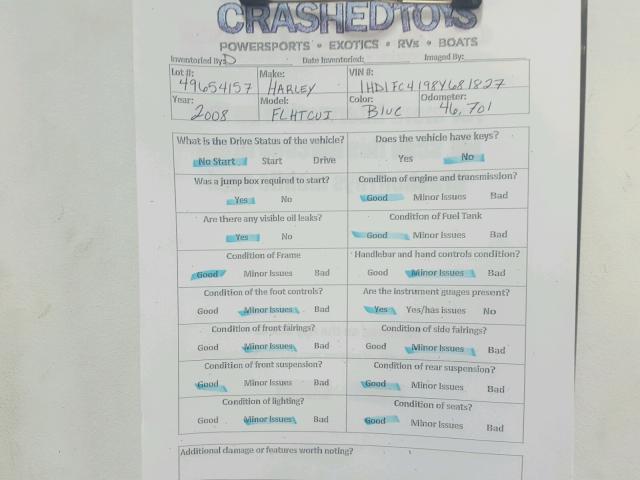 CRASHEDTOYS
POWERSPORTS • EXOTICS • RVs • BOATS
Inventoried By: D Date Inventoried: Imaged By:
Lot #: 49654157 Make: HARLEY VIN #: 1HD1FC4198Y681827
Year: 2008 Model: FLHTCUI Color: BLUE Odometer: 46,701
What is the Drive Status of the vehicle? Does the vehicle have keys?
No Start Start Drive Yes No
Was a jump box required to start? Condition of engine and transmission?
Yes No Good Minor Issues Bad
Are there any visible oil leaks? Condition of Fuel Tank
Yes No Good Minor Issues Bad
Condition of Frame Handlebar and hand controls condition?
Good Minor Issues Bad Good Minor Issues Bad
Condition of the foot controls? Are the instrument guages present?
Good Minor Issues Bad Yes Yes/has issues No
Condition of front fairings? Condition of side fairings?
Good Minor Issues Bad Good Minor Issues Bad
Condition of front suspension? Condition of rear suspension?
Good Minor Issues Bad Good Minor Issues Bad
Condition of lighting? Condition of seats?
Good Minor Issues Bad Good Minor Issues Bad
Additional damage or features worth noting?